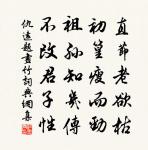 直節老欲枯
初篁瘦而勁
祖孫知幾傳
不改君子性
仇遠題畫竹詞典網集